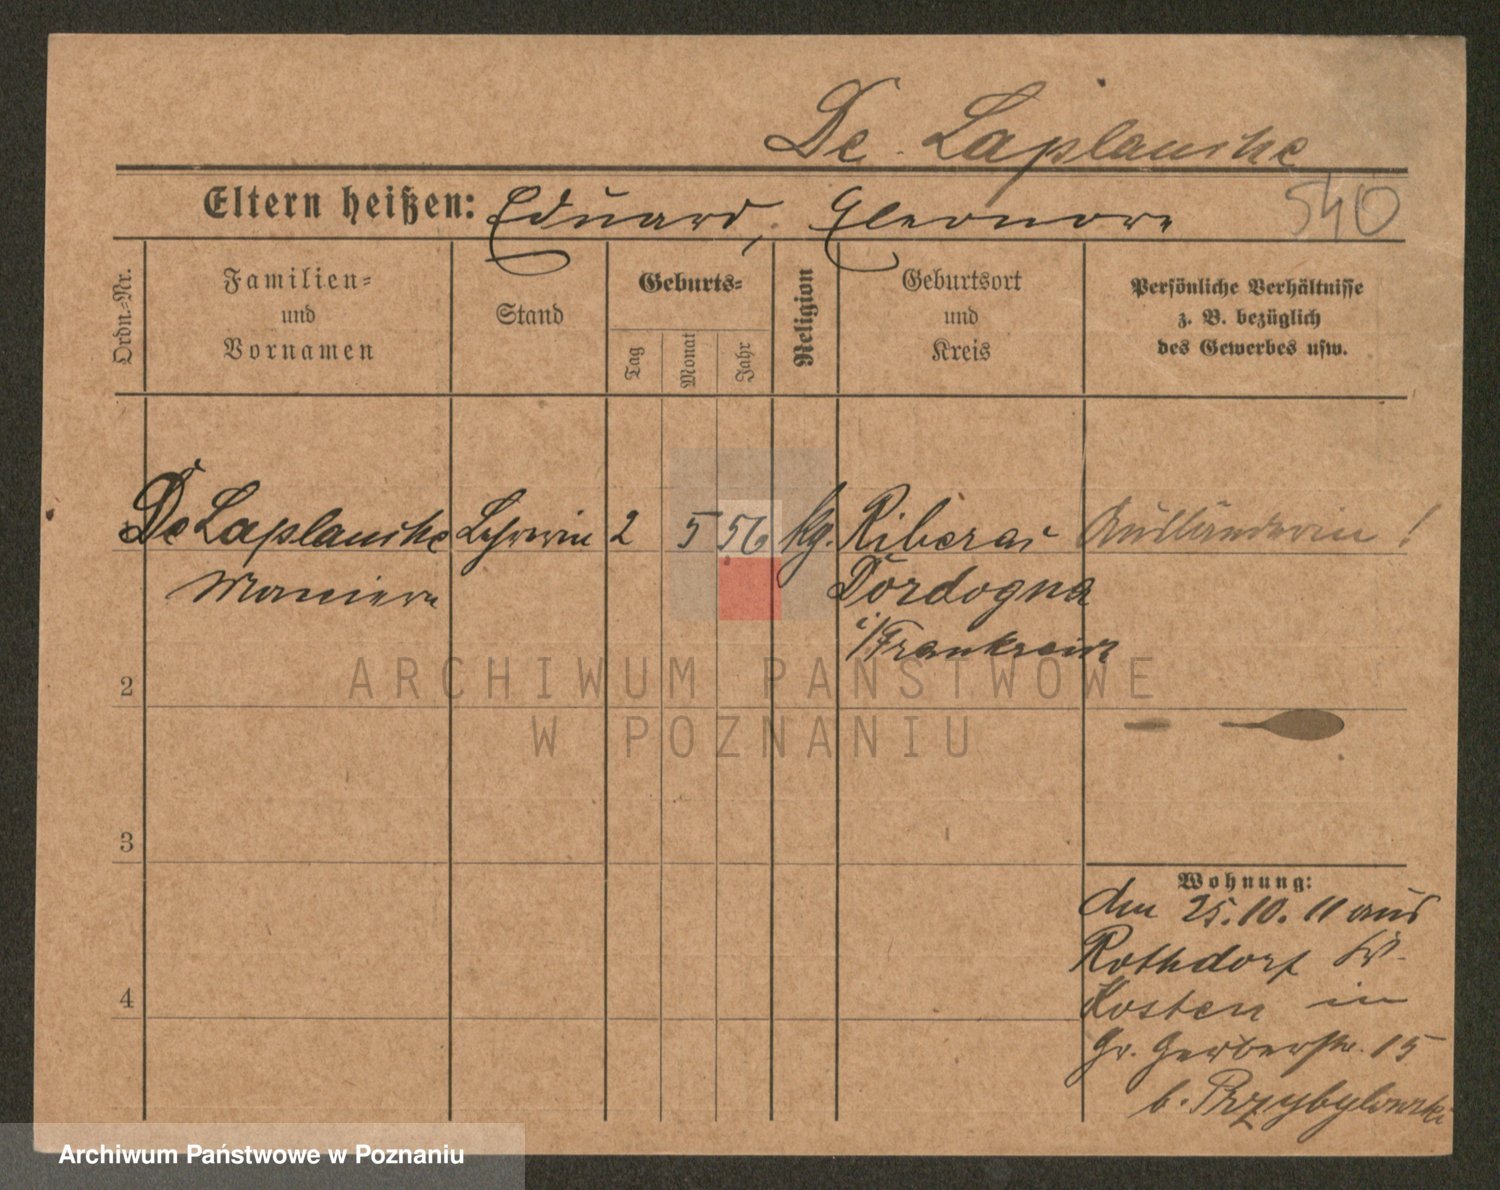 De Laplanche
Eltern heißen: Eduard, Eleonore
540
Ordn.-Nr.
Familien-
und
Vornamen
Stand
Geburts-
Tag
Monat
Jahr
Religion
Geburtsort
und
Kreis
Persönliche Verhältnisse
z. B. bezüglich
des Gewerbes usw.
De Laplanche Lehrerin 2 5 56 kg. Riberac Ausländerin!
Dordogna
i/Frankreich
2
3
4
Wohnung:
den 25.10.11 aus
Rothdorf Kr.
Kosten in
Gr. Gerberstr. 15
b. Przybylowski
ARCHIWUM PAŃSTWOWE
W POZNANIU
Archiwum Państwowe w Poznaniu